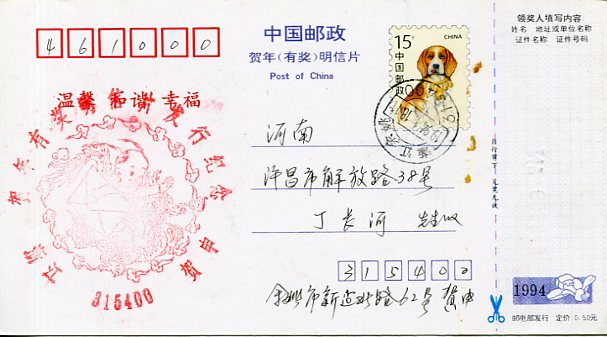 461000
中国邮政
贺年(有奖)明信片
Post of China
15分
CHINA
中国邮政
领奖人填写内容
姓名 地址或单位名称
证件名称 证件号码
温馨 和谐 幸福
315400
河南
许昌市解放路38号
丁长河 先生收
315400
余姚市新 路62号 贺申
1994
邮电部发行 定价:0.50元